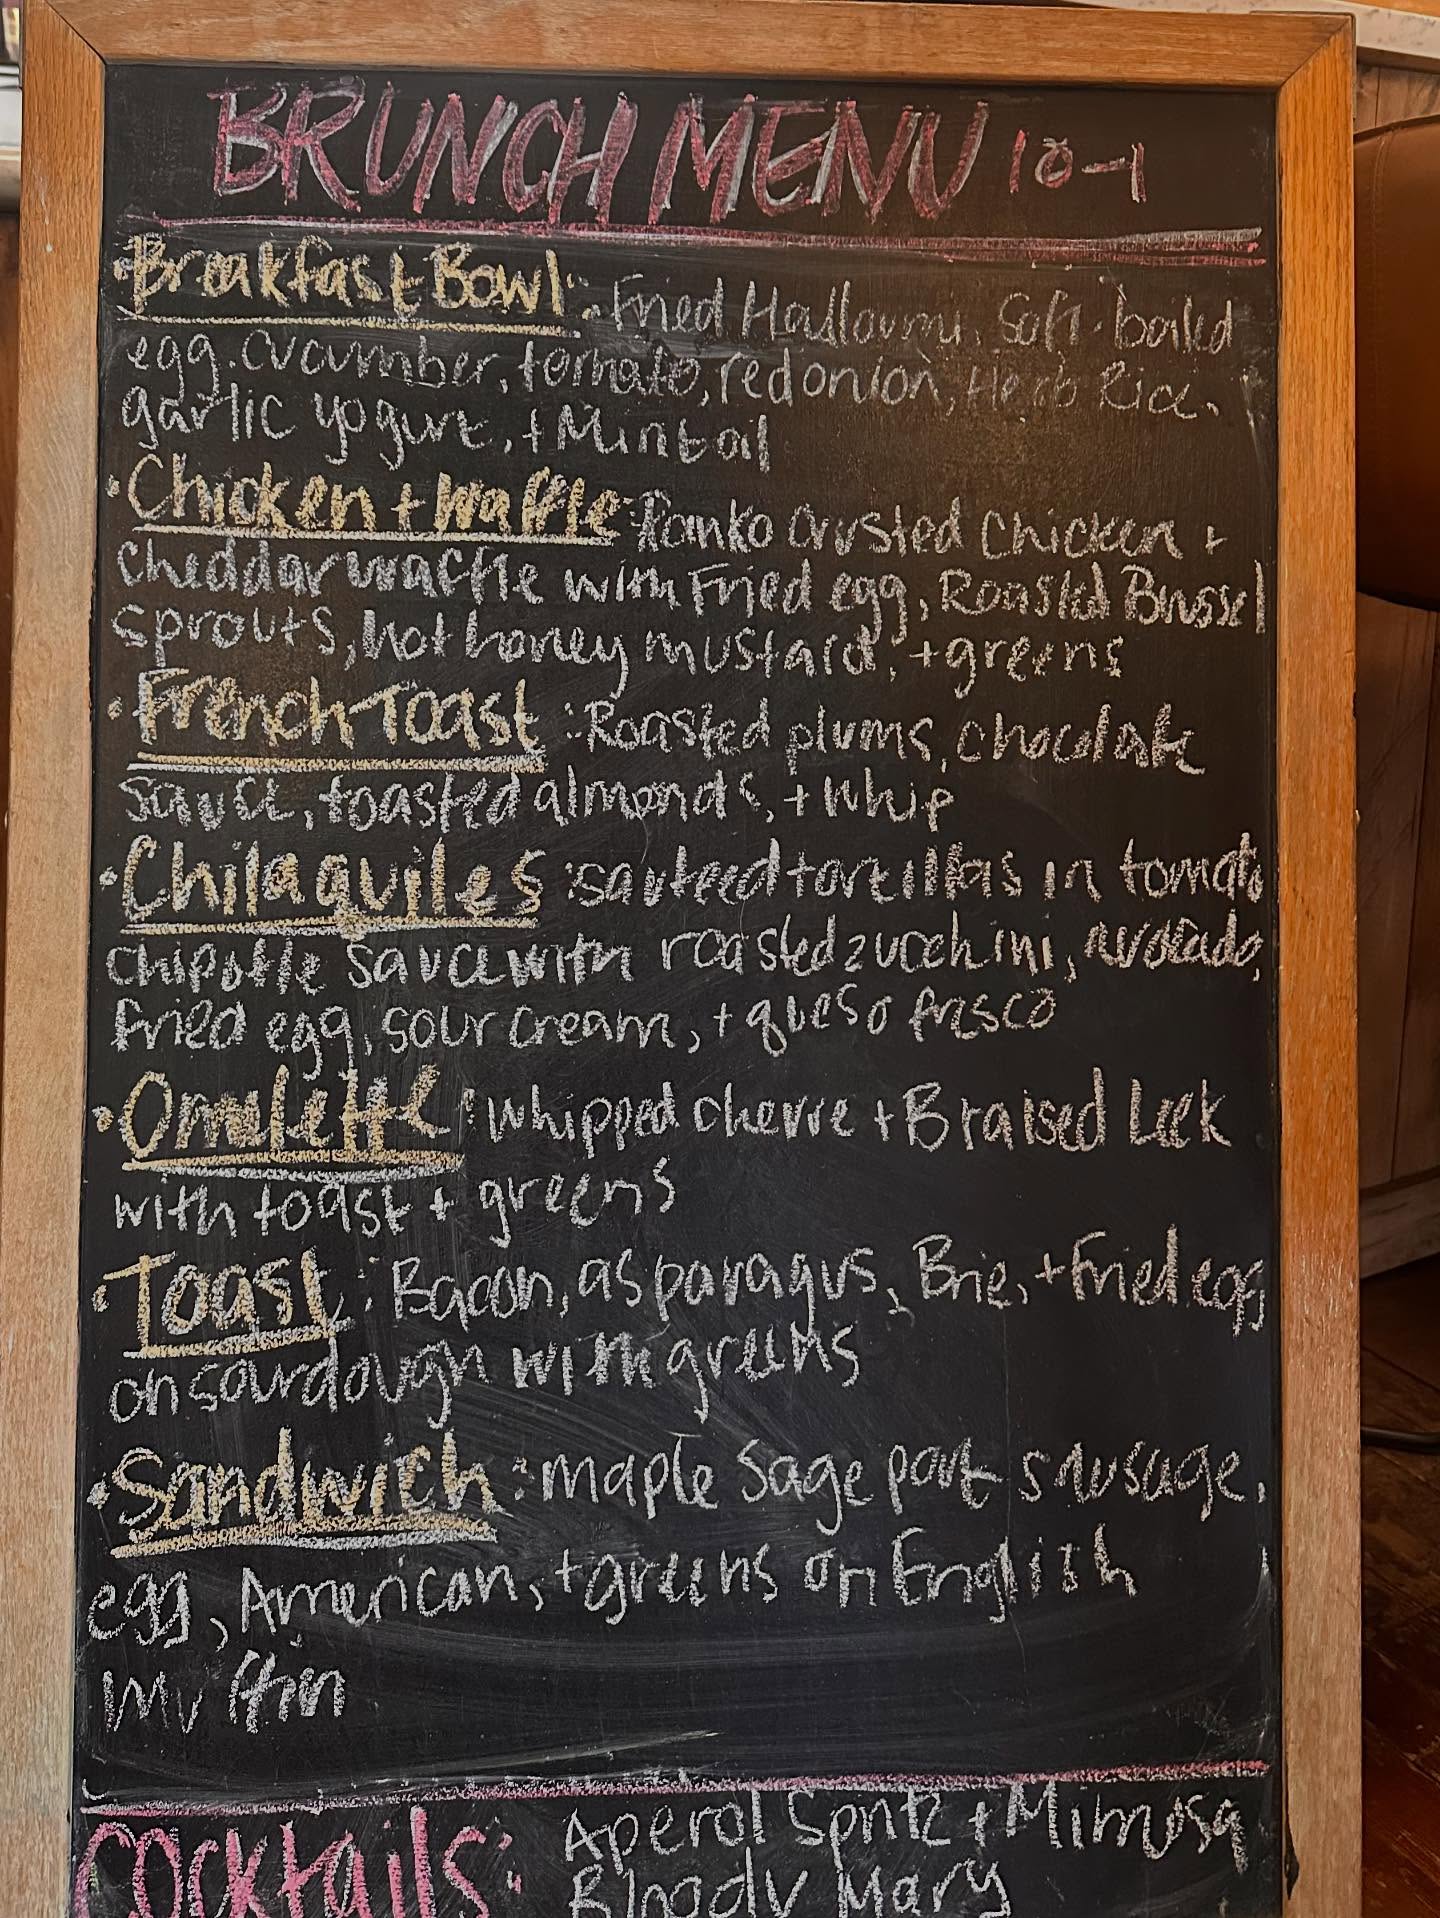 BRUNCH MENU 10-1
• Breakfast Bowl: Fried Halloumi, Soft-boiled
egg, cucumber, tomato, red onion, Herb Rice,
garlic yogurt, + Mint oil
• Chicken + Waffle: Panko crusted Chicken +
Cheddar waffle with Fried egg, Roasted Brussel
sprouts, hot honey mustard, + greens
• French Toast: Roasted plums, chocolate
sauce, toasted almonds, + Whip
• Chilaquiles: sauteed tortillas in tomato
chipotle sauce with roasted zucchini, avocado,
fried egg, sour cream, + queso fresco
• Omelette: Whipped chevre + Braised Leek
with toast + greens
• Toast: Bacon, asparagus, Brie, + fried egg
on sourdough with greens
• Sandwich: maple sage pork sausage,
egg, American, + greens on English
Muffin
Cocktails: Aperol Spritz + Mimosa
Bloody Mary